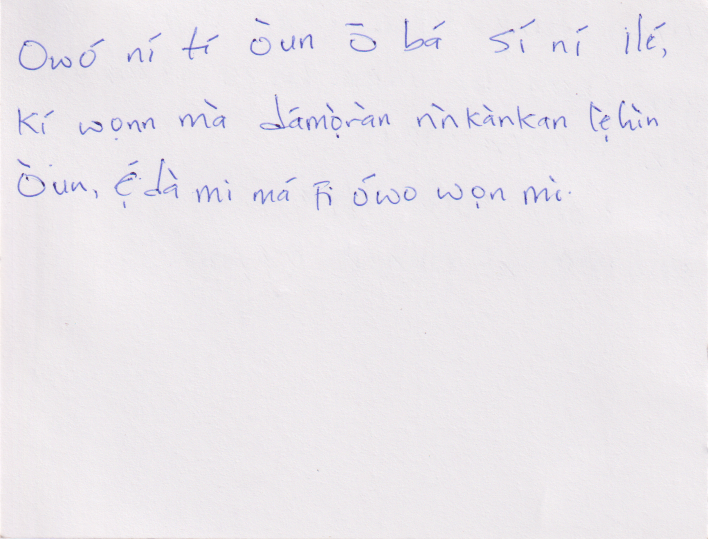 Owó ní tí Òun Ō bá sí ní ilé,
Kí wọnn mà dámọ̀ràn nǹkànkan lẹ̀hìn
Òun, Ẹ́dà mi má fi ówo wọn mì.